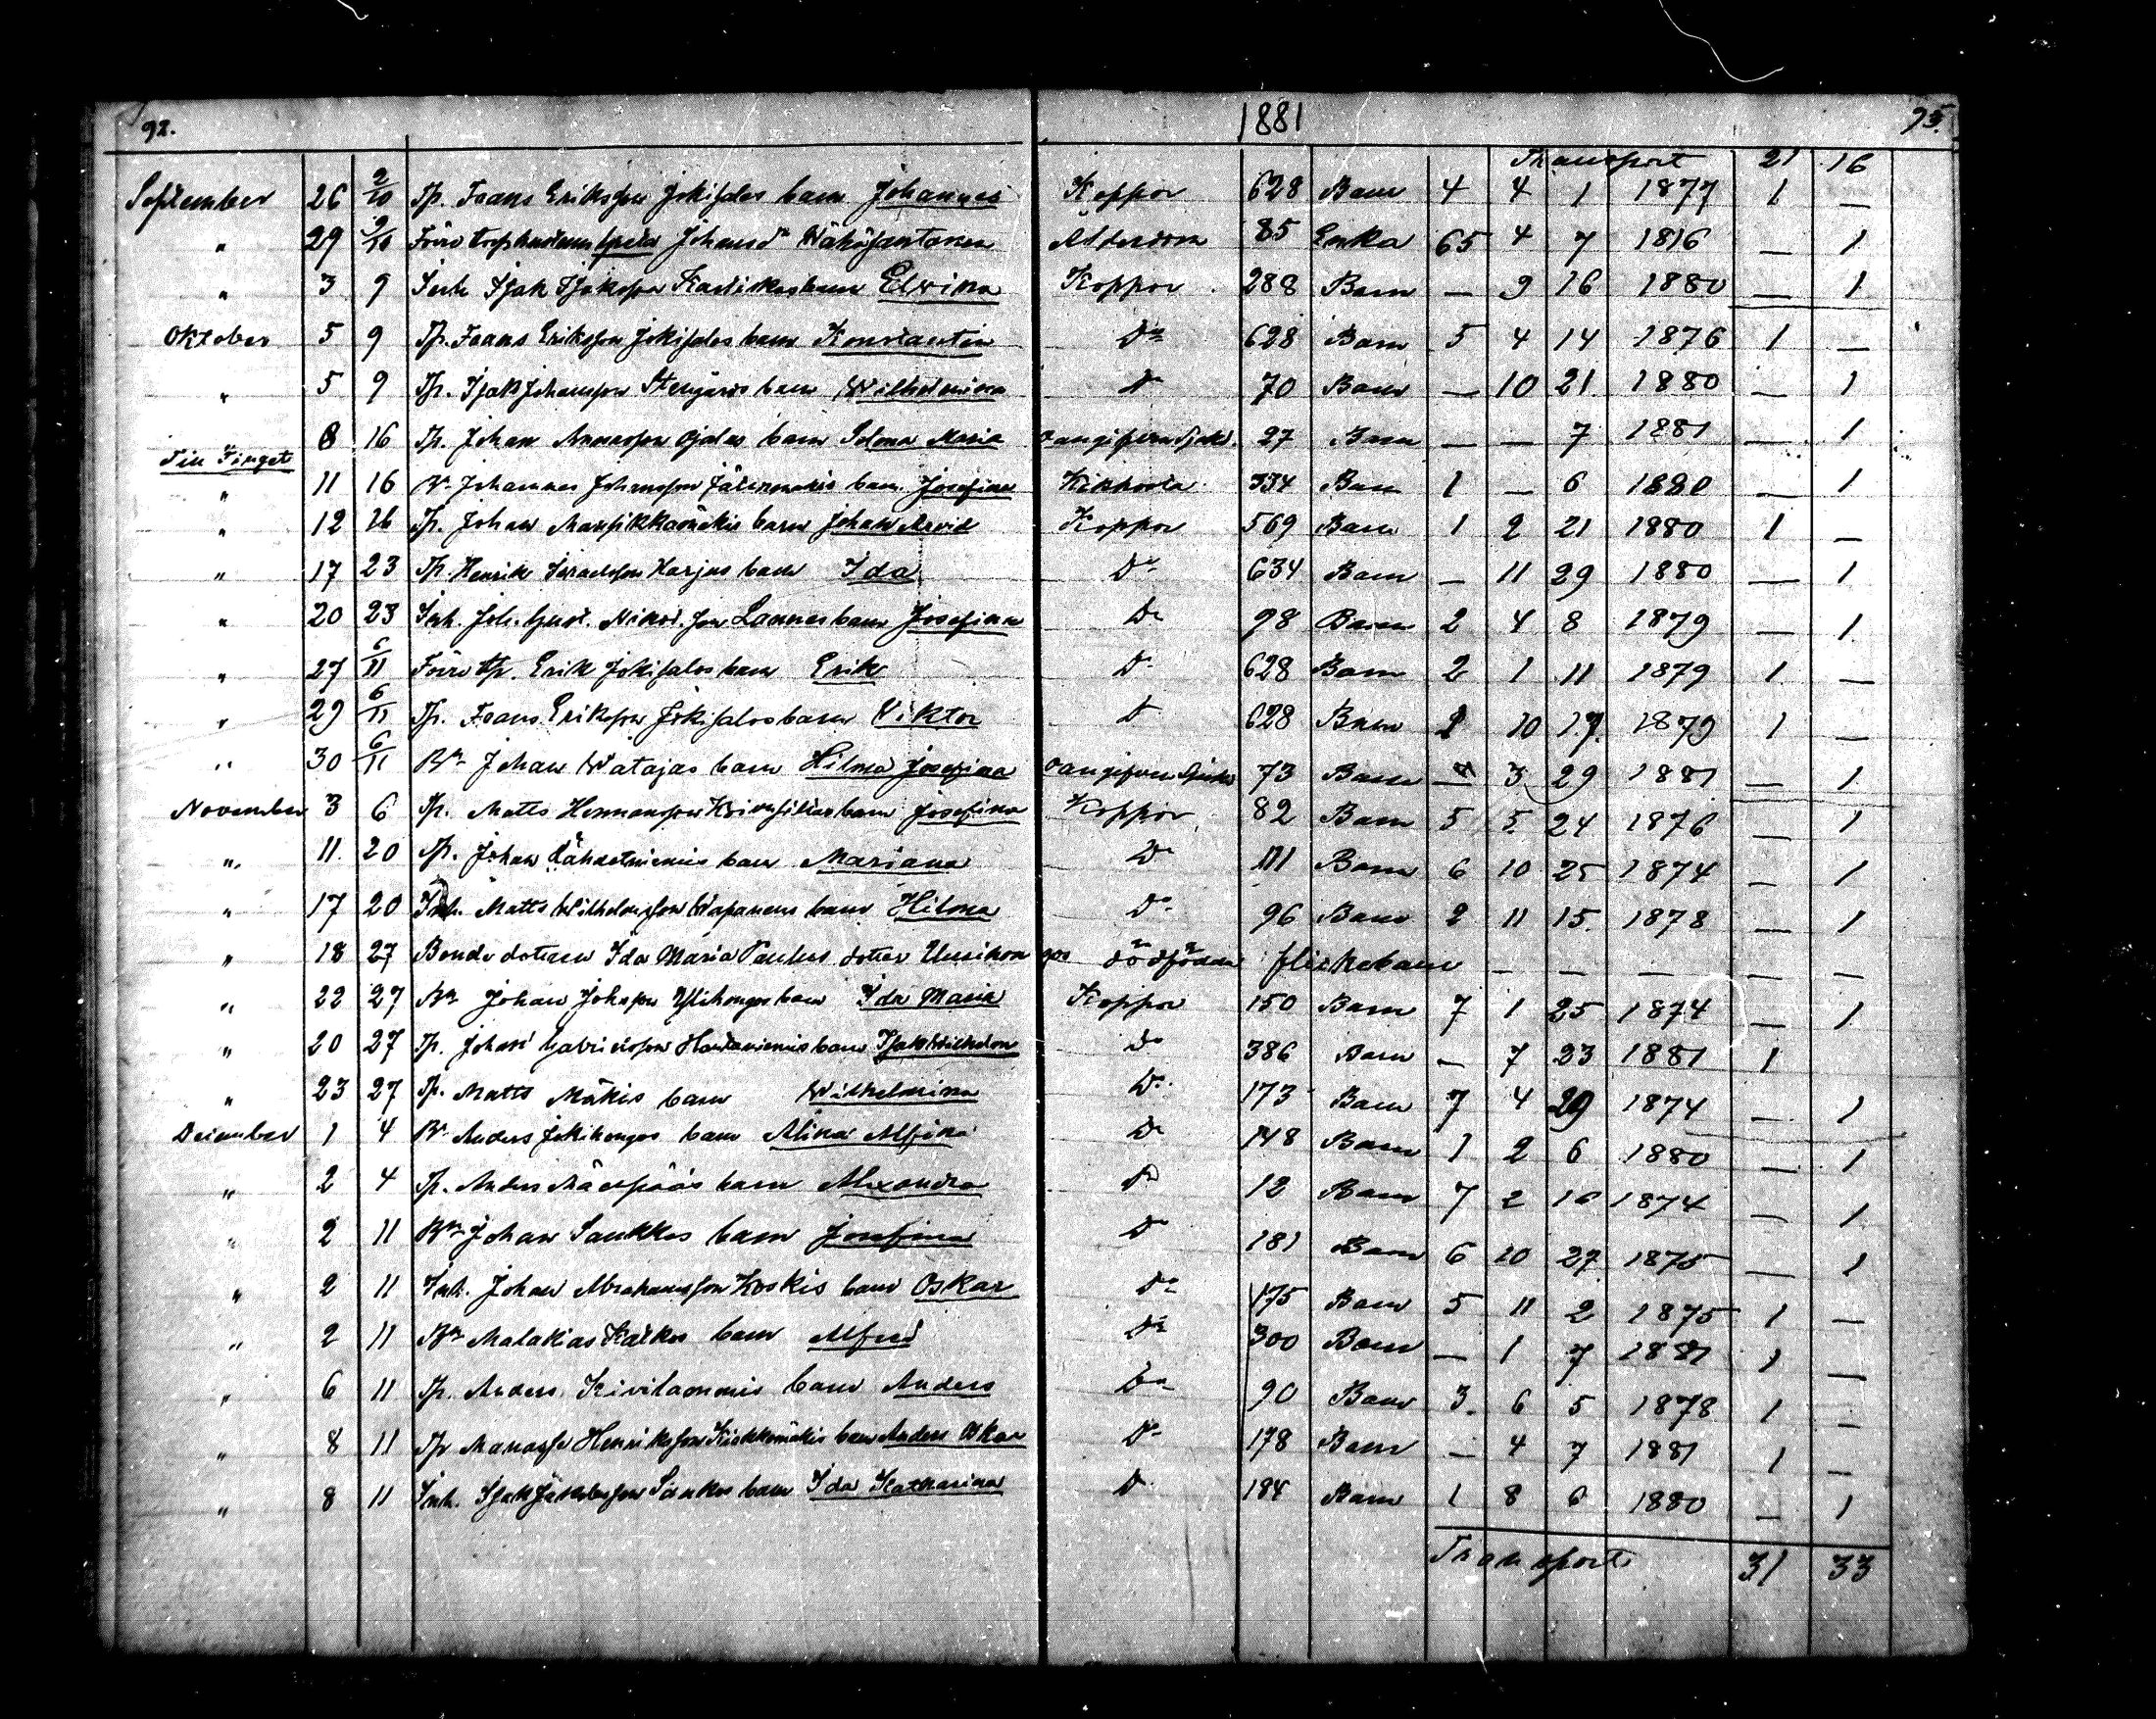 92. 1881 93.
Transport 21 16
September 26 2/10 Tp. Frans Eriksson Jokisalos barn Johannes Koppor 628 Barn 4 4 1 1877 1 —
" 29 9/10 Förre Johansdr Wähäsantanen Ålderdom 85 Enka 65 4 7 1816 — 1
" 3 9 Inh. Isak Isaksson barn Elvina Koppor 288 Barn — 9 16 1880 — 1
Oktober 5 9 Tp. Frans Eriksson Jokisalos barn Konstantin Do 628 Barn 5 4 14 1876 1 —
" 5 9 Tp. Isak Johansson barn Wilhelmina Do 70 Barn — 10 21 1880 — 1
8 16 Tp. Johan Ojalas barn Selma Maria oangifven sjukd. 27 Barn — — 7 1881 — 1
Till Tinget
" 11 16 Bn Johannes Johansson barn Josefina Kikhosta 334 Barn 1 — 6 1880 — 1
" 12 16 Tp. Johan Mansikkamäkis barn Johan Arvid Koppor 569 Barn 1 2 21 1880 1 —
" 17 23 Tp. Henrik Israelsson Harjus barn Ida Do 634 Barn — 11 29 1880 — 1
" 20 23 Inh. Joh. Gust. barn Josefina Do 98 Barn 2 4 8 1879 — 1
" 27 6/11 Förre tp. Erik Jokisalos barn Erik Do 628 Barn 2 1 11 1879 1 —
" 29 6/11 Tp. Frans Eriksson Jokisalos barn Viktor Do 628 Barn 1 10 17 1879 1 —
" 30 6/11 Bn Johan Watajas barn Hilma Josefina oangifven sjukd 73 Barn — 3 29 1881 — 1
November 3 6 Tp. Matts Hermansson barn Josefina Koppor 82 Barn 5 5 24 1876 — 1
" 11 20 Tp. Johan Lähdetniemis barn Mariana Do 111 Barn 6 10 25 1874 — 1
" 17 20 Inh. Matts Wilhelmsson barn Hilma Do 96 Barn 2 11 15 1878 — 1
" 18 27 Bonde dottren Ida Maria Paulus dotter dödfödda flickebarn — — — — — —
" 22 27 Bn Johan Johansson Ylihongos barn Ida Maria Koppor 150 Barn 7 1 25 1874 — 1
" 20 27 Tp. Johan Gabrielsson barn Isak Wilhelm Do 386 Barn — 7 23 1881 1
" 23 27 Tp. Matts Mäkis barn Wilhelmina Do 173 Barn 7 4 29 1874 — 1
December 1 4 Bn Anders Jokihongos barn Alina Alfina Do 148 Barn 1 2 6 1880 — 1
" 2 4 Tp. Anders Mäenpääs barn Alexandra Do 12 Barn 7 2 16 1874 — 1
" 2 11 Bn Johan Saukkos barn Josefina Do 181 Barn 6 10 27 1875 — 1
" 2 11 Inh. Johan Abrahamsson Koskis barn Oskar Do 175 Barn 5 11 2 1875 1 —
" 2 11 Bn Malakias barn Alfred Do 300 Barn — 1 7 1881 1 —
" 6 11 Tp. Anders Kivilammis barn Anders Do 90 Barn 3 6 5 1878 1 —
" 8 11 Tp Manasse Henriksson barn Anders Oskar Do 178 Barn — 4 7 1881 1 —
" 8 11 Inh. Isak Jakobsson barn Ida Katharina Do 184 Barn 1 8 6 1880 — 1
Transport 31 33